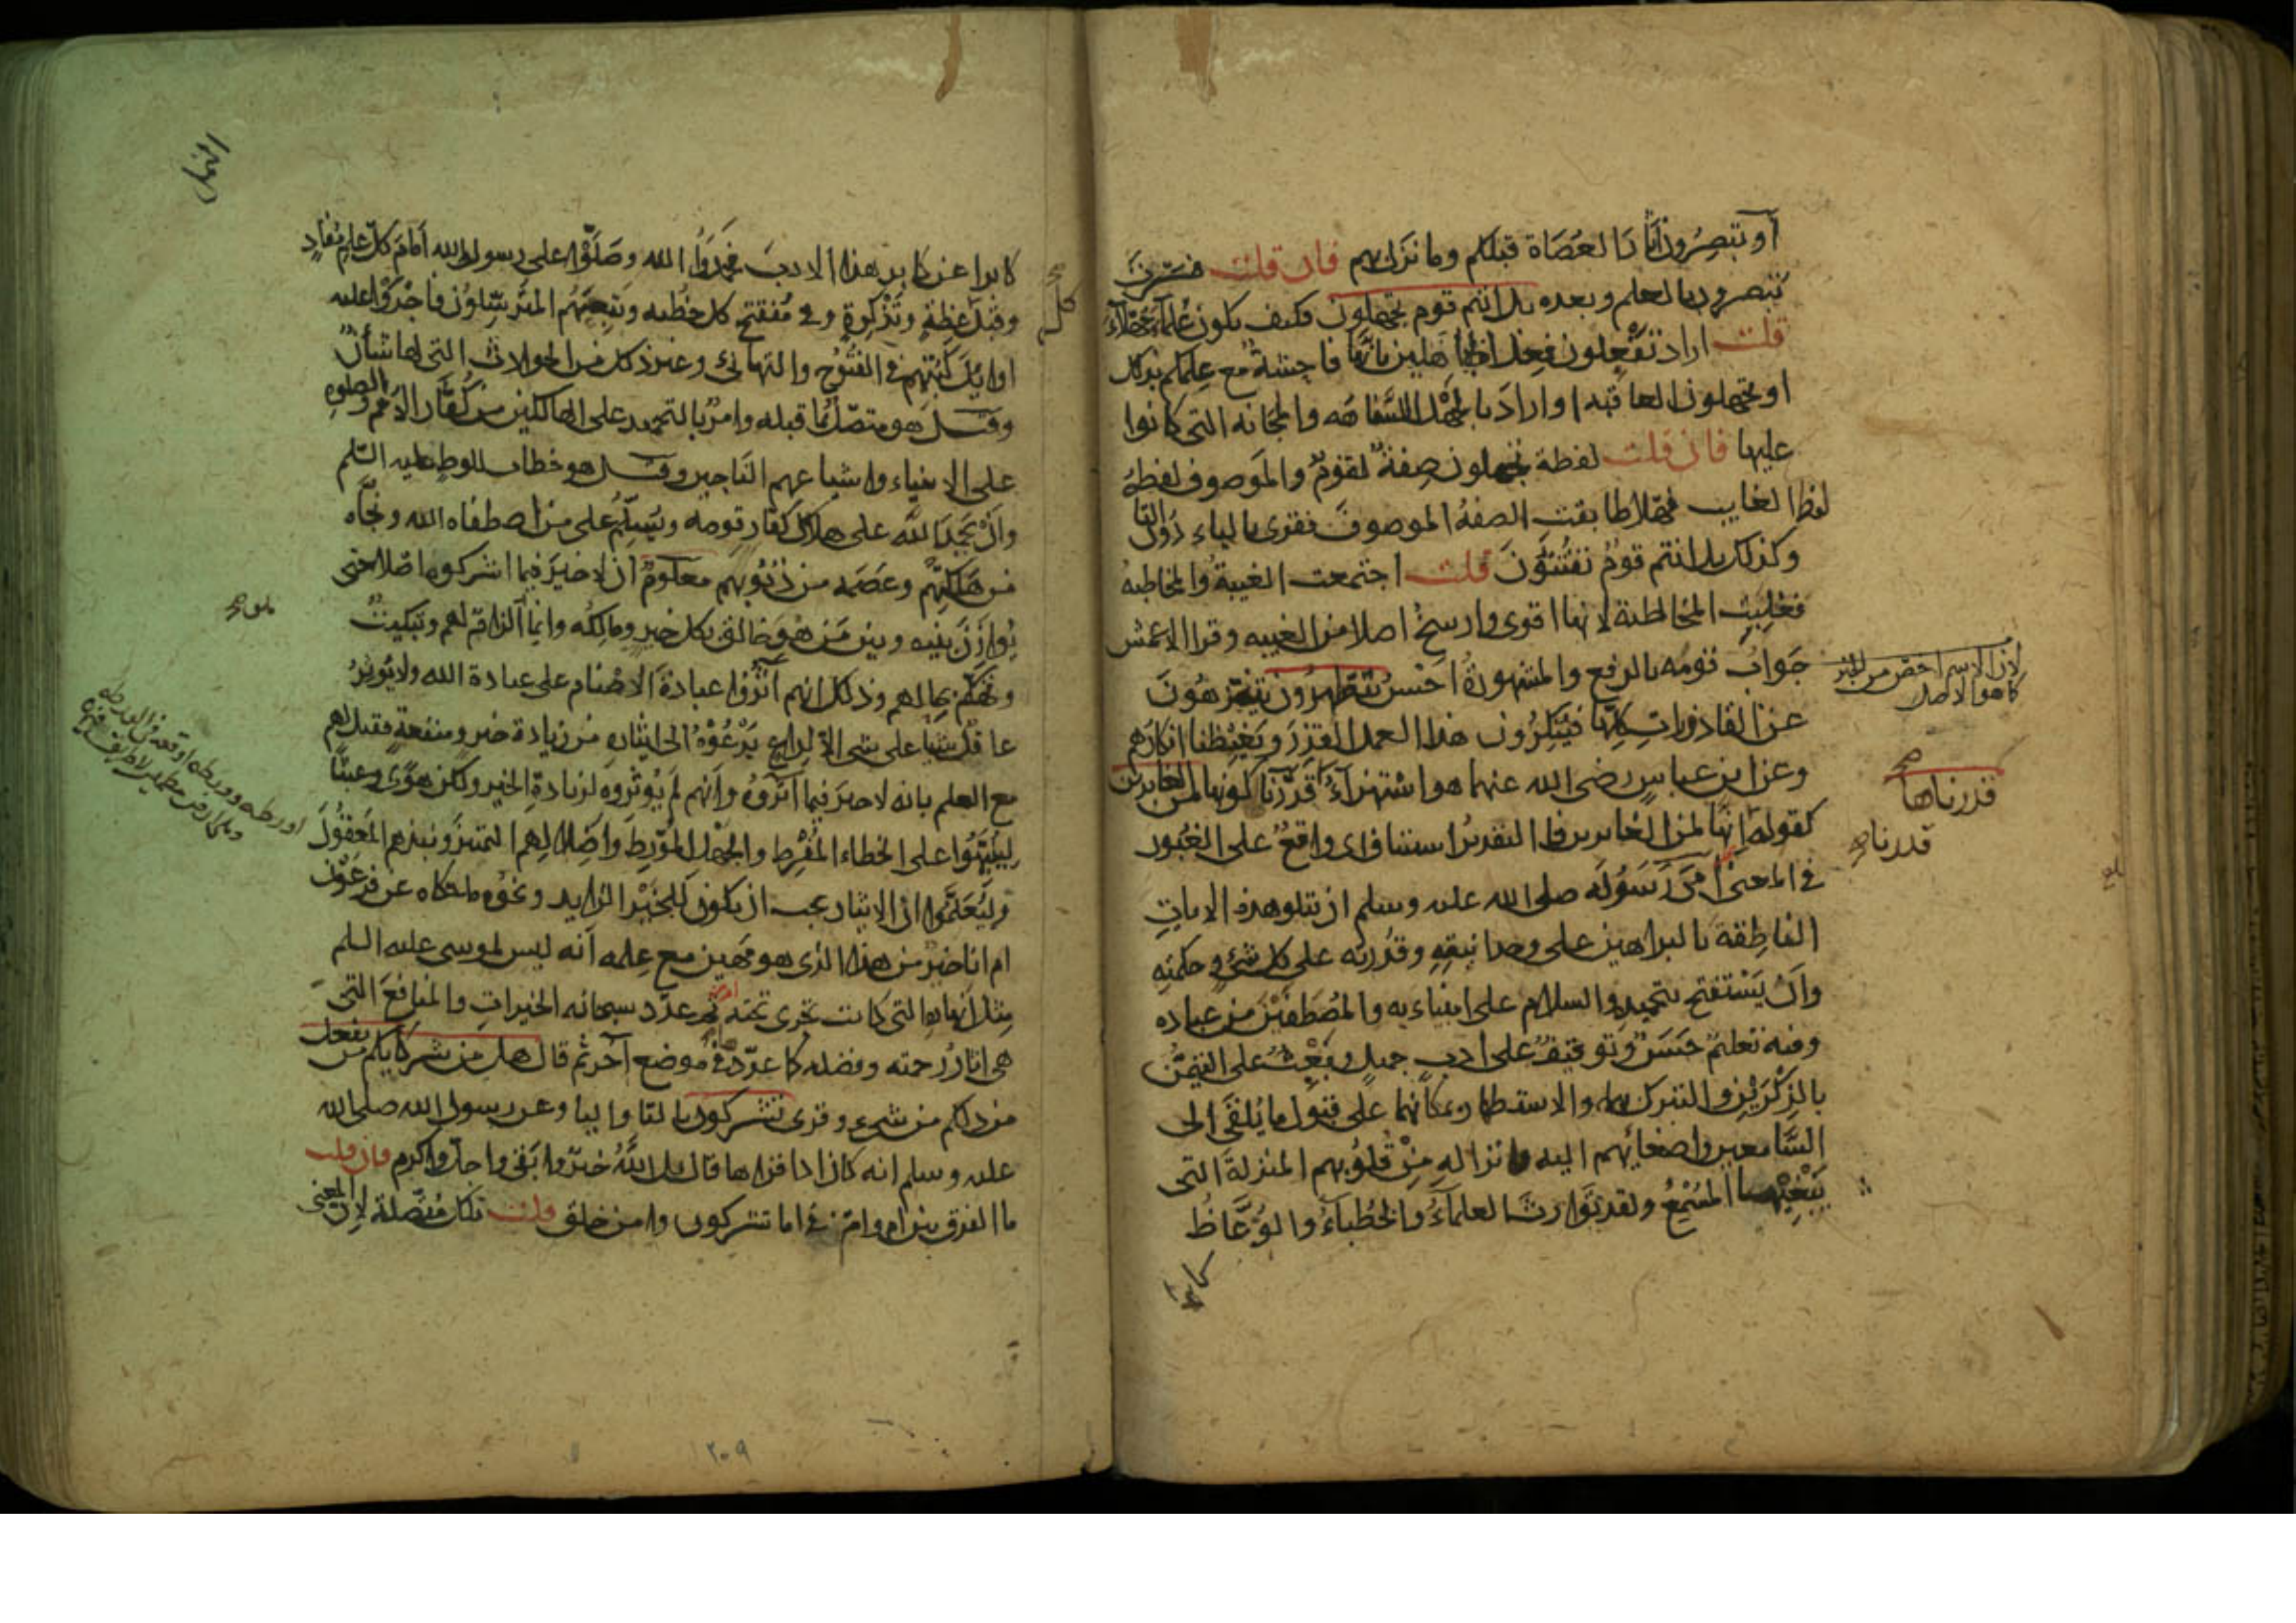 أو تبصرون آثار العصاة قبلكم وما نزل بهم فان قلت فسرت
تبصرون بالعلم وبعده بل انتم قوم تجهلون فكيف يكون علماء جهلاء
قلت اراد تفعلون فعل الجاهلين بانها فاحشة مع علمكم بذلك
او تجهلون العاقبة او اراد بالجهل السفاهه والمجانه التى كانوا
عليها فان قلت لفظة تجهلون صفة لقوم والموصوف لفظه
لفظ الغايب فهلا طابقت الصفة الموصوف فقرى بالياء دون التا
وكذلك بل انتم قوم تفتنون قلت اجتمعت الغيبة والمخاطبه
فغلبت المخاطبة لانها اقوى وارسخ اصلا من الغيبه وقرا الاعمش
جواب قومه بالرفع والمشهورة احسن يتطهرون يتنزهون
عن القاذورات كلها فينكرون هذا العمل القذر ويغيظنا انكارهم
وعن ابن عباس رضى الله عنهما هو استهزاء قدرنا كونها من الغابرين
كقوله انها لمن الغابرين فا التقدير استنافاى واقع على الغبور
فى المعنى امر رسوله صلى الله عليه وسلم ان يتلو هذه الايات
الناطقة بالبراهين على وحدانيته وقدرته على كل شئ وحكمته
وان يستفتح بتحميده والسلام على انبياءيه والمصطفين من عباده
وفيه تعليم حسن وتوقيف على ادب جميل وبعث على التيمن
بالذكرين والتبرك بهما والاستظهار بمكانهما على قبول ما يلقى الى
السامعين واصغائهم اليه وانزاله من قلوبهم المنزلة التى
يبغيها المسمع ولقد توارث العلماء والخطباء والوعاظ
كابرا
لان الاسم اخص من الخبر
كما هو الاصل
صح
قدرناها
قدرنا صح
النمل
كابرا عن كابر هذا الادب فحمدوا الله وصلوا على رسول الله أمام كل علم مفاد
وقبل عظة وتذكرة وفى مفتتح كل خطبه وتبعهم المترسلون فاجروا عليه
اوايل كتبهم فى الفتوح والتهانى وغير ذلك من الحوادث التى لها شأن
وقيل هو متصل بما قبله وامر بالتحميد على الهالكين من كفار الامم والصلوة
على الانبياء واشياعهم الناجين وقيل هو خطاب للوط عليه السلم
وان يحمد الله على هلاك كفار قومه ويسلم على من اصطفاه الله ونجاه
من هلكتهم وعصمه من ذنوبهم معلوم ان لا خير فيما اشركوه اصلا حتى
يوازن بينه وبين من هو خالق كل خير ومالكه وانما الزام لهم وتبكيت
وتهكم بحالهم وذلك انهم آثروا عبادة الاصنام على عبادة الله ولا يوثر
عاقل شيا على شى الا لداع يدعوه الى ايثاره من زيادة خير ومنفعة فقيل لهم
مع العلم بانه لا خير فيما آثروه وانهم لم يوثروه لزيادة الخير ولكن هوى وعبثا
لينبهوا على الخطاء المفرط والجهل المورط واضلالهم التمييز ونبذهم المعقول
وليعلموا ان الايثار يجب ان يكون للخير الزايد ونحوه ما حكاه عن فرعون
ام انا خير من هذا الذى هو مهين مع علمه انه ليس لموسى عليه السلم
مثل انهاره التى كانت تجرى تحته ثم عدد سبحانه الخيرات والمنافع التى
هى اثار رحمته وفضله كما عددها فى موضع آخر ثم قال هل من شركايكم من يفعل
من ذلكم من شىء وقرى تشركون بالتا واليا وعن رسول الله صلى الله
عليه وسلم انه كان اذا قراها قال بل الله خير وابقى واجل واكرم فان قلت
ما الفرق بين ام وام فى اما تشركون وامن خلق قلت تلك متصلة لان المعنى
٢٠٩